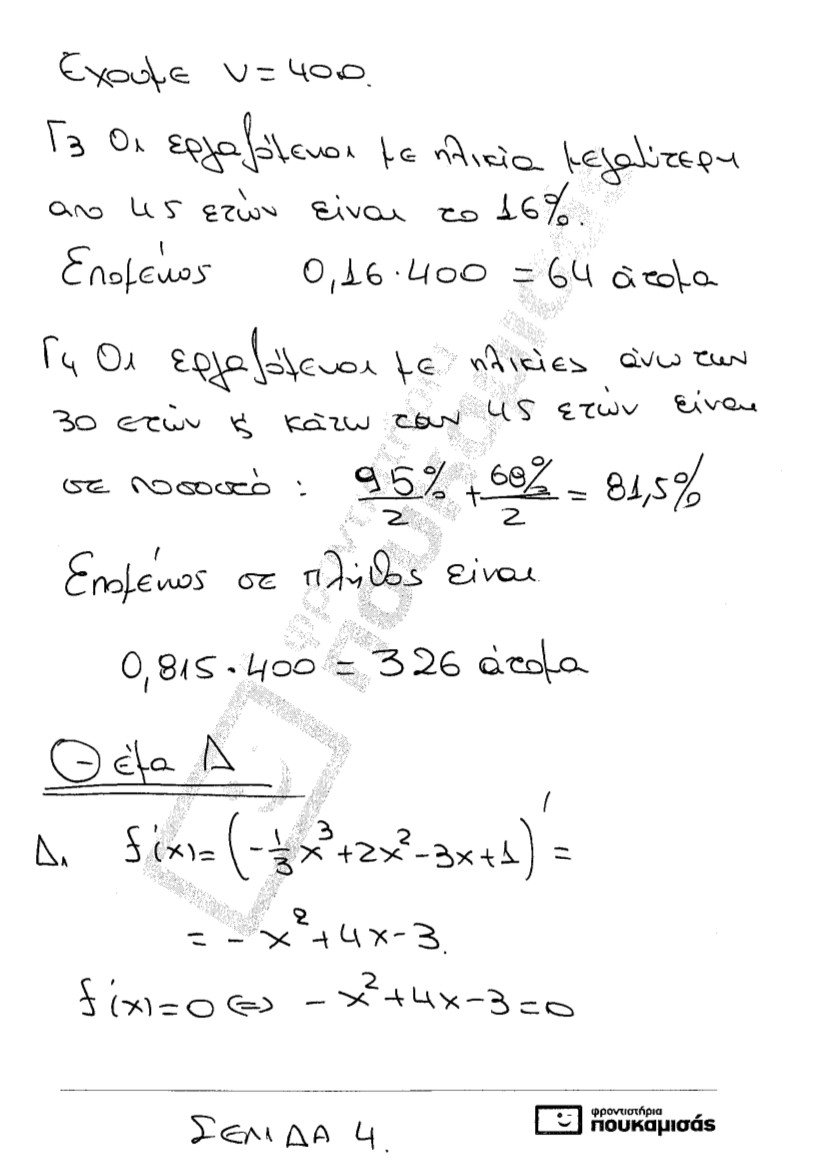 Έχουμε ν = 400.
Γ3 Οι εργαζόμενοι με ηλικία μεγαλύτερη
απο 45 ετών είναι το 16%.
Επομένως 0,16·400 = 64 άτομα
Γ4 Οι εργαζόμενοι με ηλικίες άνω των
30 ετών κ κάτω των 45 ετών είναι
σε ποσοστό : 95%/2 + 68%/2 = 81,5%
Επομένως σε πλήθος είναι
0,815·400 = 326 άτομα
Θέμα Δ
Δ1 f'(x) = (-1/3x³+2x²-3x+1)' =
= -x²+4x-3.
f'(x)=0 ⇔ -x²+4x-3=0
ΣΕΛΙΔΑ 4.
φροντιστήρια
πουκαμισάς
φροντιστήρια
πουκαμισάς